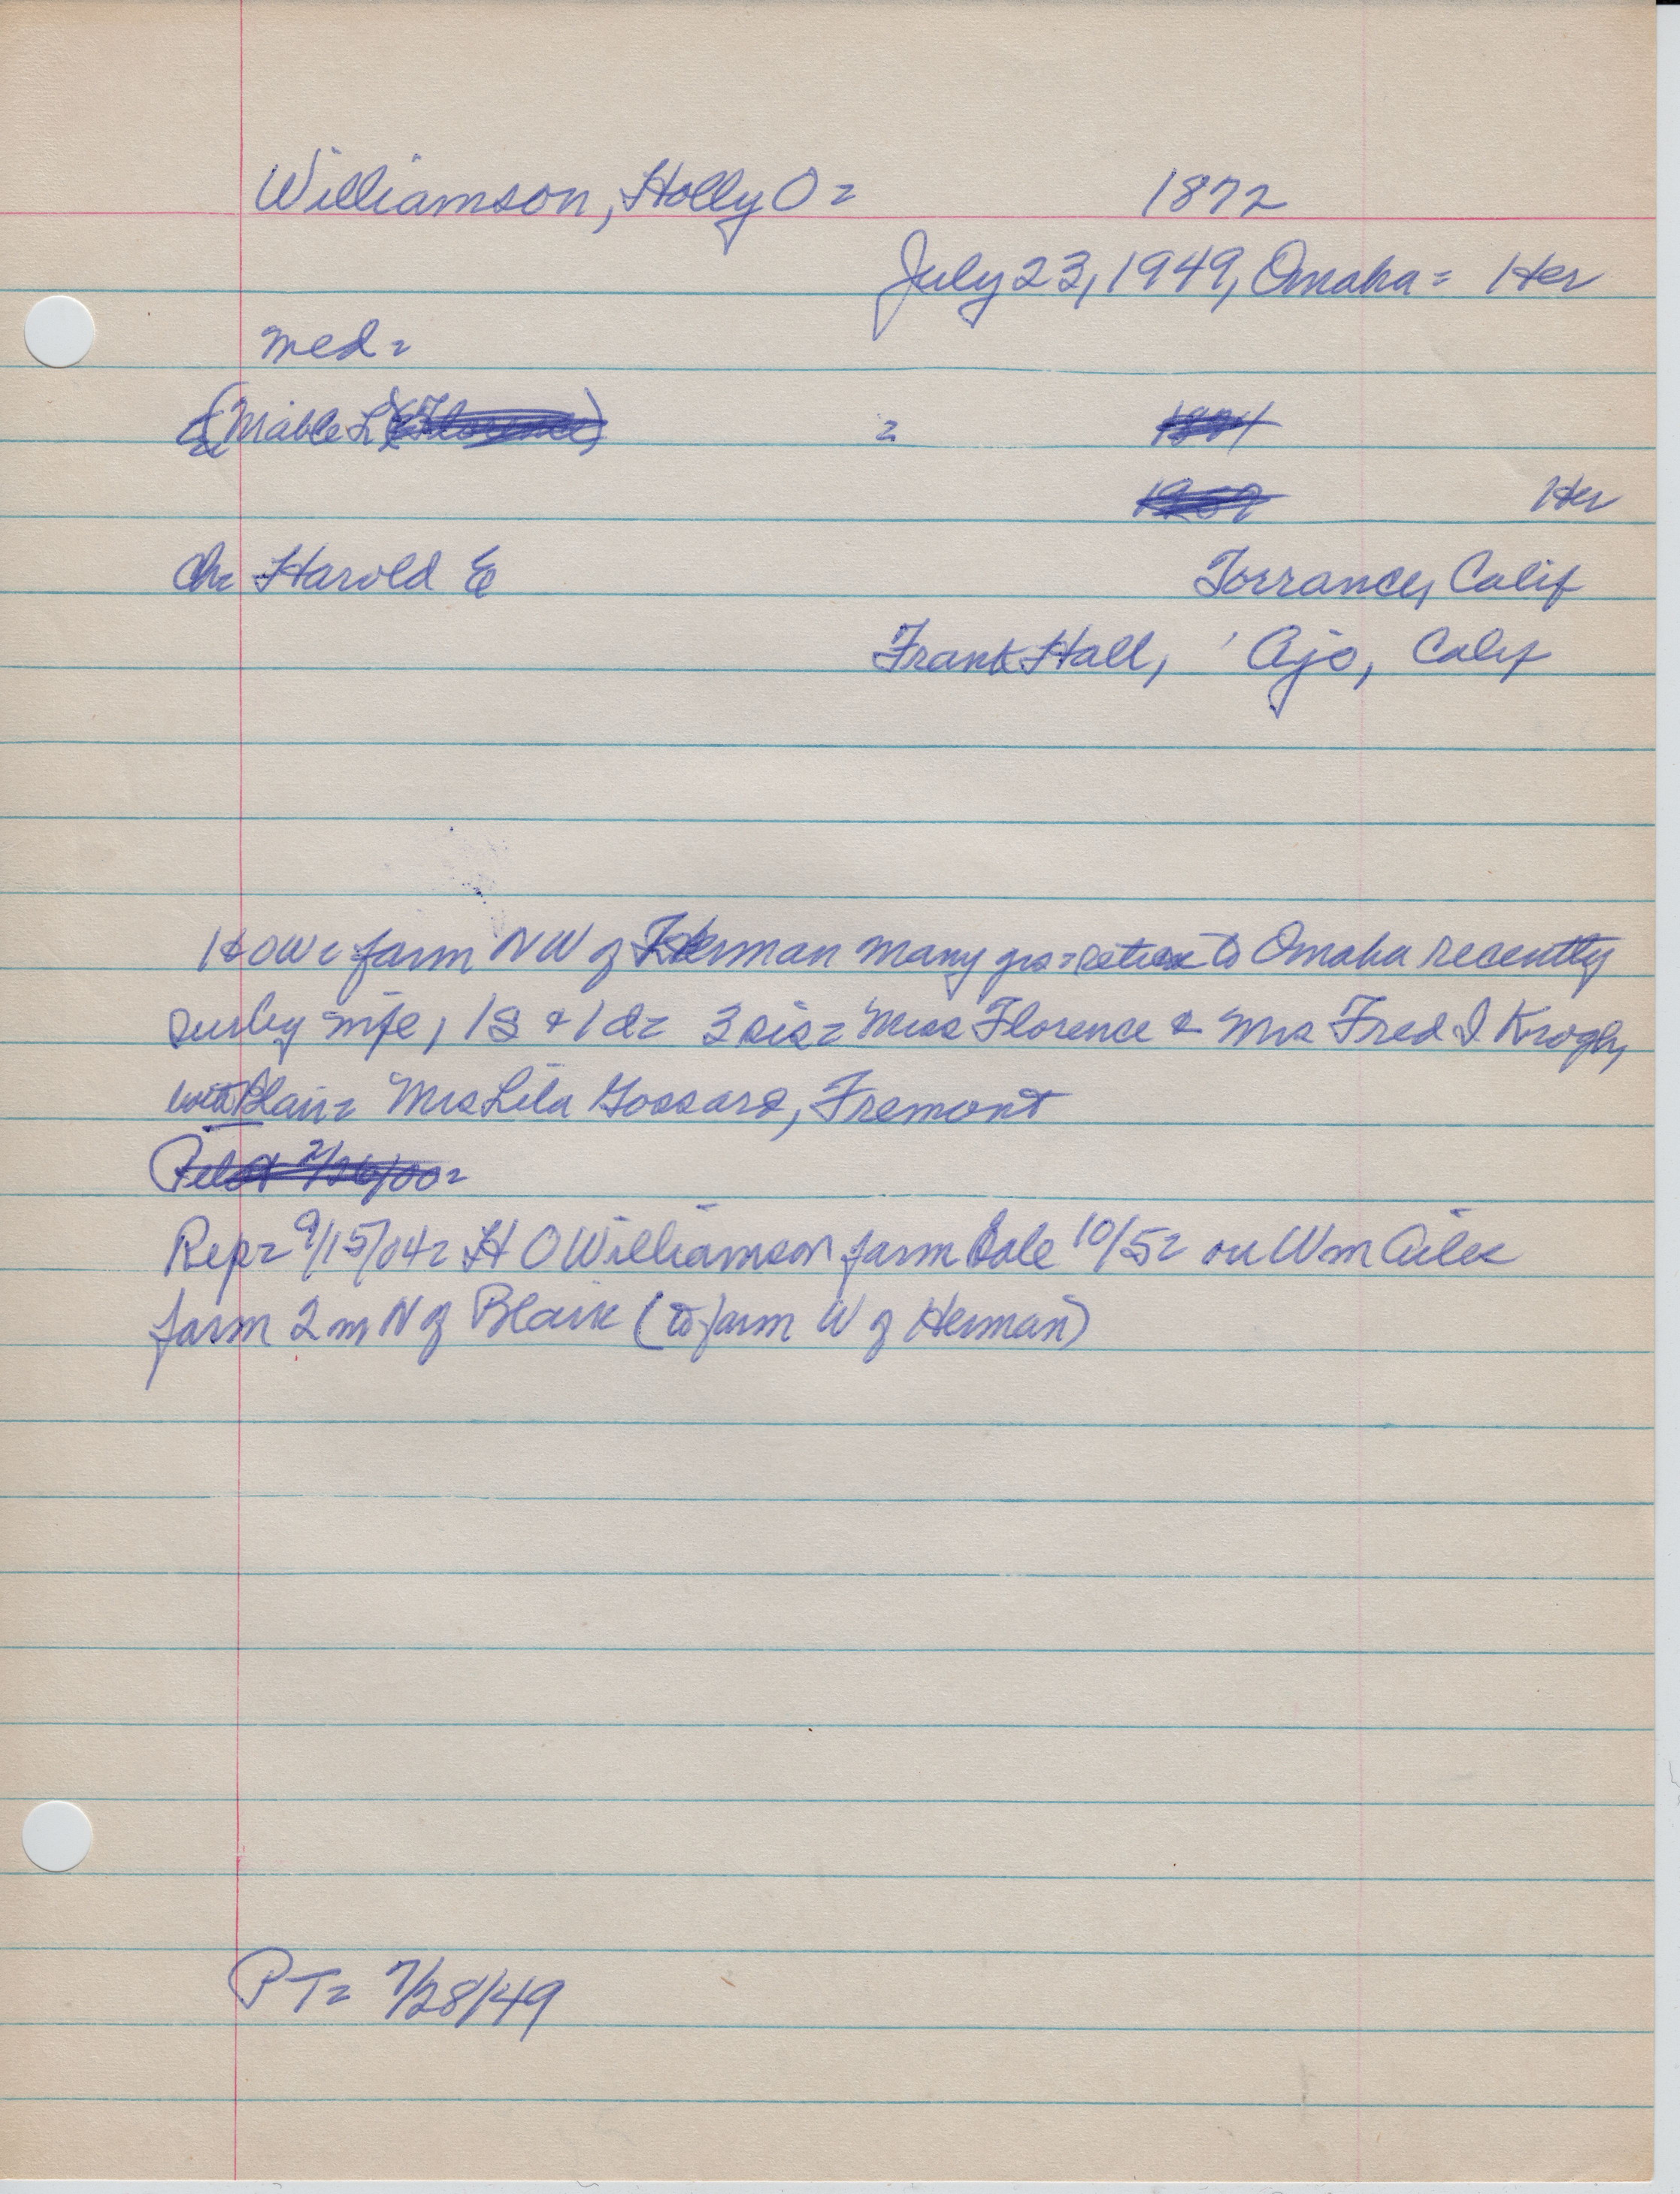 Williamson, Holly O = 1872
July 23, 1949, Omaha = Her
med =
(Mable L (Florence) = 1894
1959 Her
Ch = Harold E Torrance, Calif
Frank Hall, Ajo, Calif
HOW = farm NW of Herman many yrs = retired to Omaha recently
Surby wife, 1s & 1d = 3 sis = Miss Florence & Mrs Fred I. Krogh,
with Blair = Mrs Lila Gossard, Fremont
Pilot
Rep = 9/15/04 = H O Williamson farm sale 10/5 = on Wm
farm 2 m N of Blair (to farm W of Herman)
PT = 7/28/49